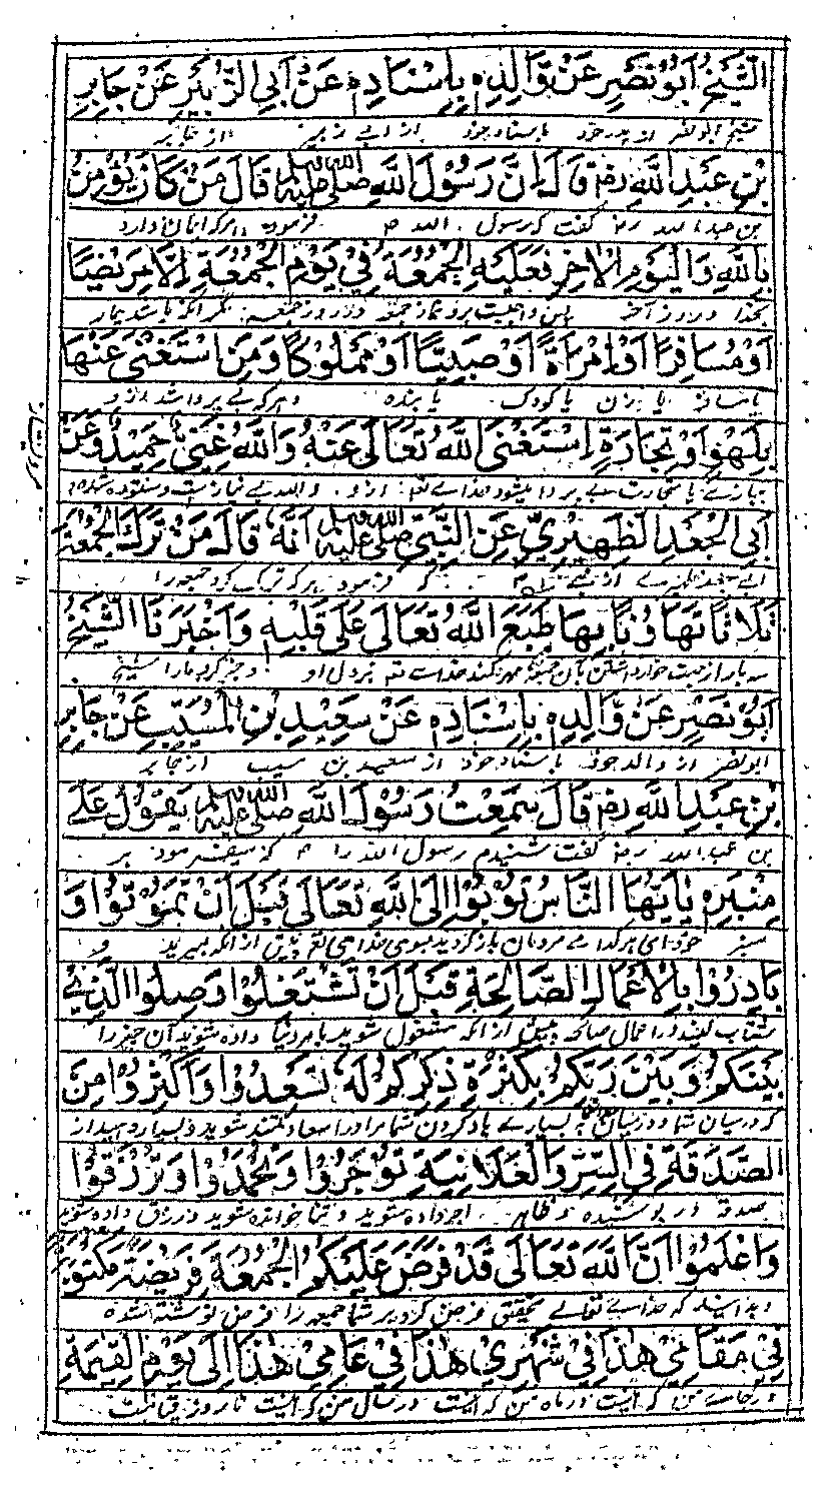 الشَّيْخُ اَبُوْ نَصْرٍ عَنْ وَّالِدِهٖ بِاِسْنَادِهٖ عَنْ اَبِي الزُّبَيْرِ عَنْ جَابِرِ
شیخ ابونصر از پدر خود باسناد خود از ابی زبیر از جابر
بْنِ عَبْدِ اللّٰهِ رض قَالَ اِنَّ رَسُوْلَ اللّٰهِ صلى الله عليه وسلم قَالَ مَنْ كَانَ يُؤْمِنُ
بن عبدالله رض گفت که رسول الله ص فرمود هرکه ایمان دارد
بِاللّٰهِ وَالْيَوْمِ الْاٰخِرِ فَعَلَيْهِ الْجُمُعَةُ فِيْ يَوْمِ الْجُمُعَةِ اِلَّا مَرِيْضًا
بخدا و بروز آخر پس واجبست برو نماز جمعه در روز جمعه مگر آنکه باشد بیمار
اَوْ مُسَافِرًا اَوِ امْرَاَةً اَوْ صَبِيًّا اَوْ مَمْلُوْكًا وَمَنِ اسْتَغْنٰى عَنْهَا
یا مسافر یا زن یا کودک یا بنده و هرکه بی پروا شد از و
بِلَهْوٍ اَوْ تِجَارَةٍ اِسْتَغْنَى اللّٰهُ تَعَالٰى عَنْهُ وَاللّٰهُ غَنِيٌّ حَمِيْدٌ وَعَنْ
ببازی یا تجارت بی پروا میشود خدای تعم از و والله بی نیازست و ستوده شده
اَبِي الْجَعْدِ الظَّهِيْرِيِّ عَنِ النَّبِيِّ صلى الله عليه وسلم اَنَّهٗ قَالَ مَنْ تَرَكَ الْجُمُعَةَ
که فرمود هر که ترک کرد جمعه را
ثَلَاثًا تَهَاوُنًا بِهَا طَبَعَ اللّٰهُ تَعَالٰى عَلٰى قَلْبِهٖ وَاَخْبَرَنَا الشَّيْخُ
سه بار از جهت خوار داشتن بآن جمعه مهر کند خدای تعم بر دل او و خبر کرد مارا شیخ
اَبُوْ نَصْرٍ عَنْ وَّالِدِهٖ بِاِسْنَادِهٖ عَنْ سَعِيْدِ بْنِ الْمُسَيَّبِ عَنْ جَابِرِ
ابونصر از والد خود باسناد خود از سعید بن مسیب از جابر
بْنِ عَبْدِ اللّٰهِ رض قَالَ سَمِعْتُ رَسُوْلَ اللّٰهِ صلى الله عليه وسلم يَقُوْلُ عَلٰى
بن عبدالله رض گفت شنیدم رسول الله را ص که میفرمود بر
مِنْبَرِهٖ يٰاَيُّهَا النَّاسُ تُوْبُوْا اِلَى اللّٰهِ تَعَالٰى قَبْلَ اَنْ تَمُوْتُوْا وَ
منبر خود ای مردمان باز گردید بسوی خدای تعم پیش از آنکه بمیرید و
بَادِرُوْا بِالْاَعْمَالِ الصَّالِحَةِ قَبْلَ اَنْ تَشْتَغِلُوْا وَصِلُوا الَّذِيْ
بشتاب کنید در اعمال صالحه پیش از آنکه مشغول شوید آن چیز را
بَيْنَكُمْ وَبَيْنَ رَبِّكُمْ بِكَثْرَةِ ذِكْرِكُمْ لَهٗ تَسْعَدُوْا وَاَكْثِرُوْا مِنَ
که درمیان شما و درمیان به بسیاری یاد کردن شما مر او را سعادتمند شوید و بسیار دهید از
الصَّدَقَةِ فِي السِّرِّ وَالْعَلَانِيَةِ تُوْجَرُوْا وَتُحْمَدُوْا وَتُرْزَقُوْا
صدقه در پوشیده و ظاهر اجر داده شوید و ثنا خوانده شوید و رزق داده شوید
وَاعْلَمُوْا اَنَّ اللّٰهَ تَعَالٰى قَدْ فَرَضَ عَلَيْكُمُ الْجُمُعَةَ فَرِيْضَةً مَكْتُوْبَةً
و بدانید که خدای تعالی تحقیق فرض کرد بر شما جمعه را فرض نوشته شده
فِيْ مَقَامِيْ هٰذَا فِيْ شَهْرِيْ هٰذَا فِيْ عَامِيْ هٰذَا اِلٰى يَوْمِ الْقِيٰمَةِ
در جای من که اینست در ماه من که اینست در سال من که اینست تا روز قیامت